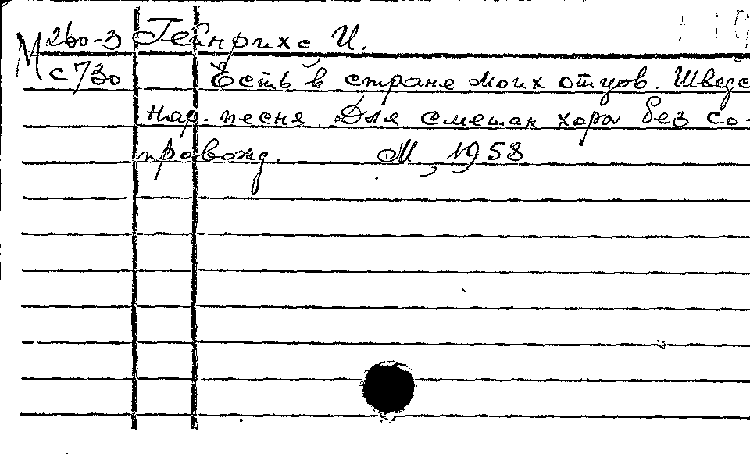 М 260-3 Гейнрихс И.
с 730 Есть в стране моих отцов. Шведс
Нар. песня. Для смешан хора без со-
провожд. М, 1958